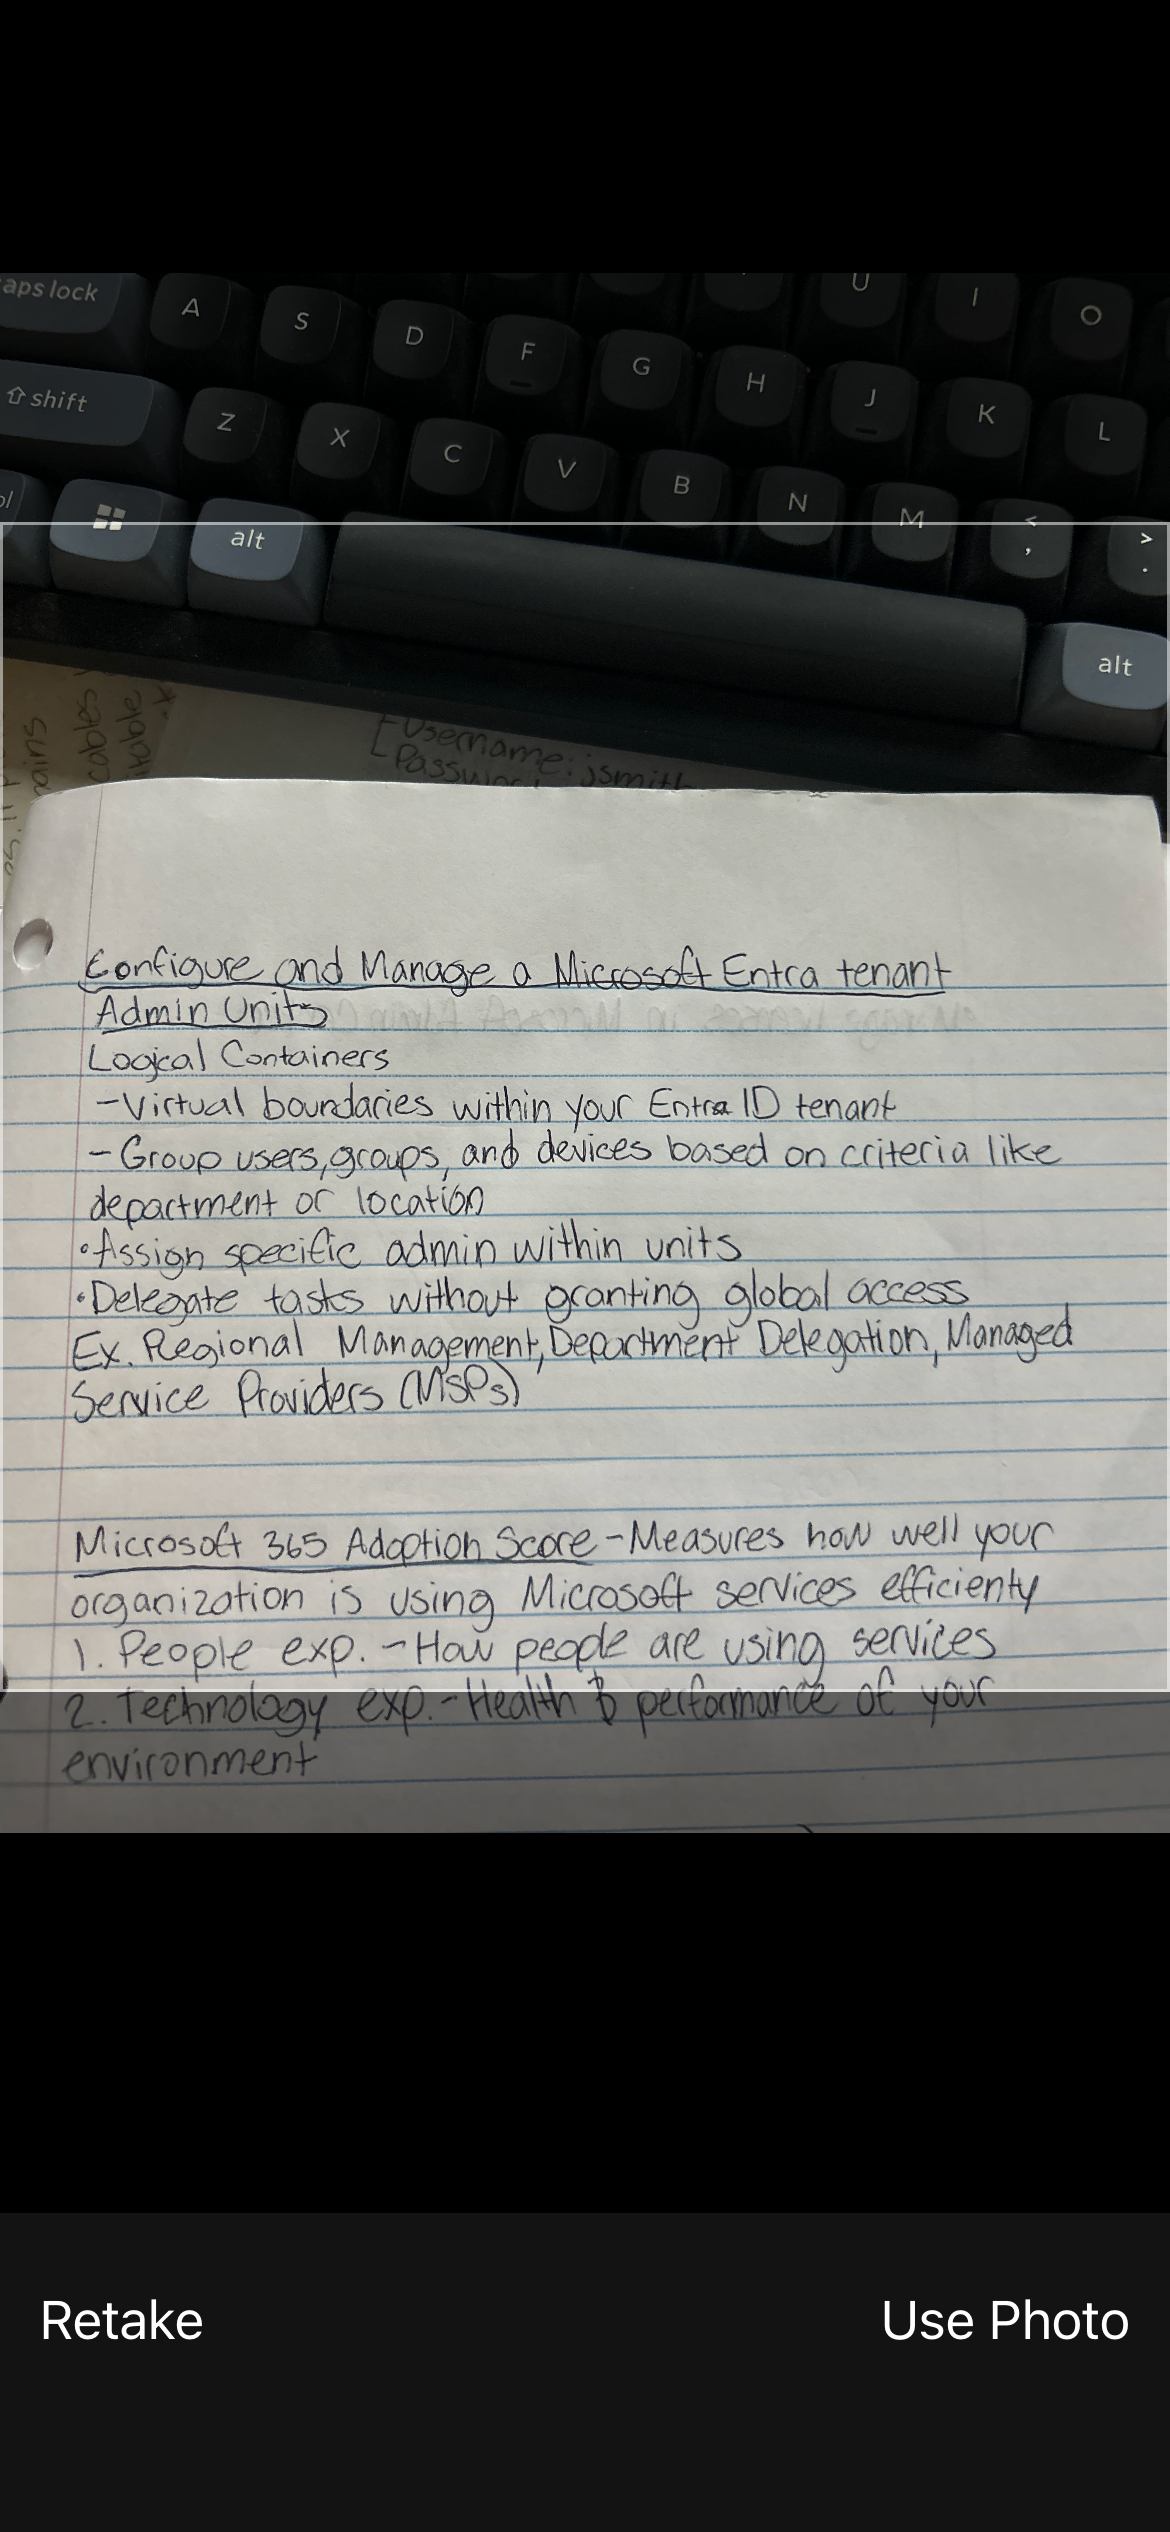 aps lock A S D F G H J K L U I O
shift Z X C V B N M < , > .
alt alt
cables
itable
Username: jsmith
Configure and Manage a Microsoft Entra tenant
Admin Units
Logical Containers
-Virtual boundaries within your Entra ID tenant
-Group users, groups, and devices based on criteria like
department or location
•Assign specific admin within units
•Delegate tasks without granting global access
Ex. Regional Management, Department Delegation, Managed
Service Providers (MSPs)
Microsoft 365 Adoption Score -Measures how well your
organization is using Microsoft services efficienty
1. People exp. -How people are using services
2. Technology exp.-Health & performance of your
environment
Retake
Use Photo